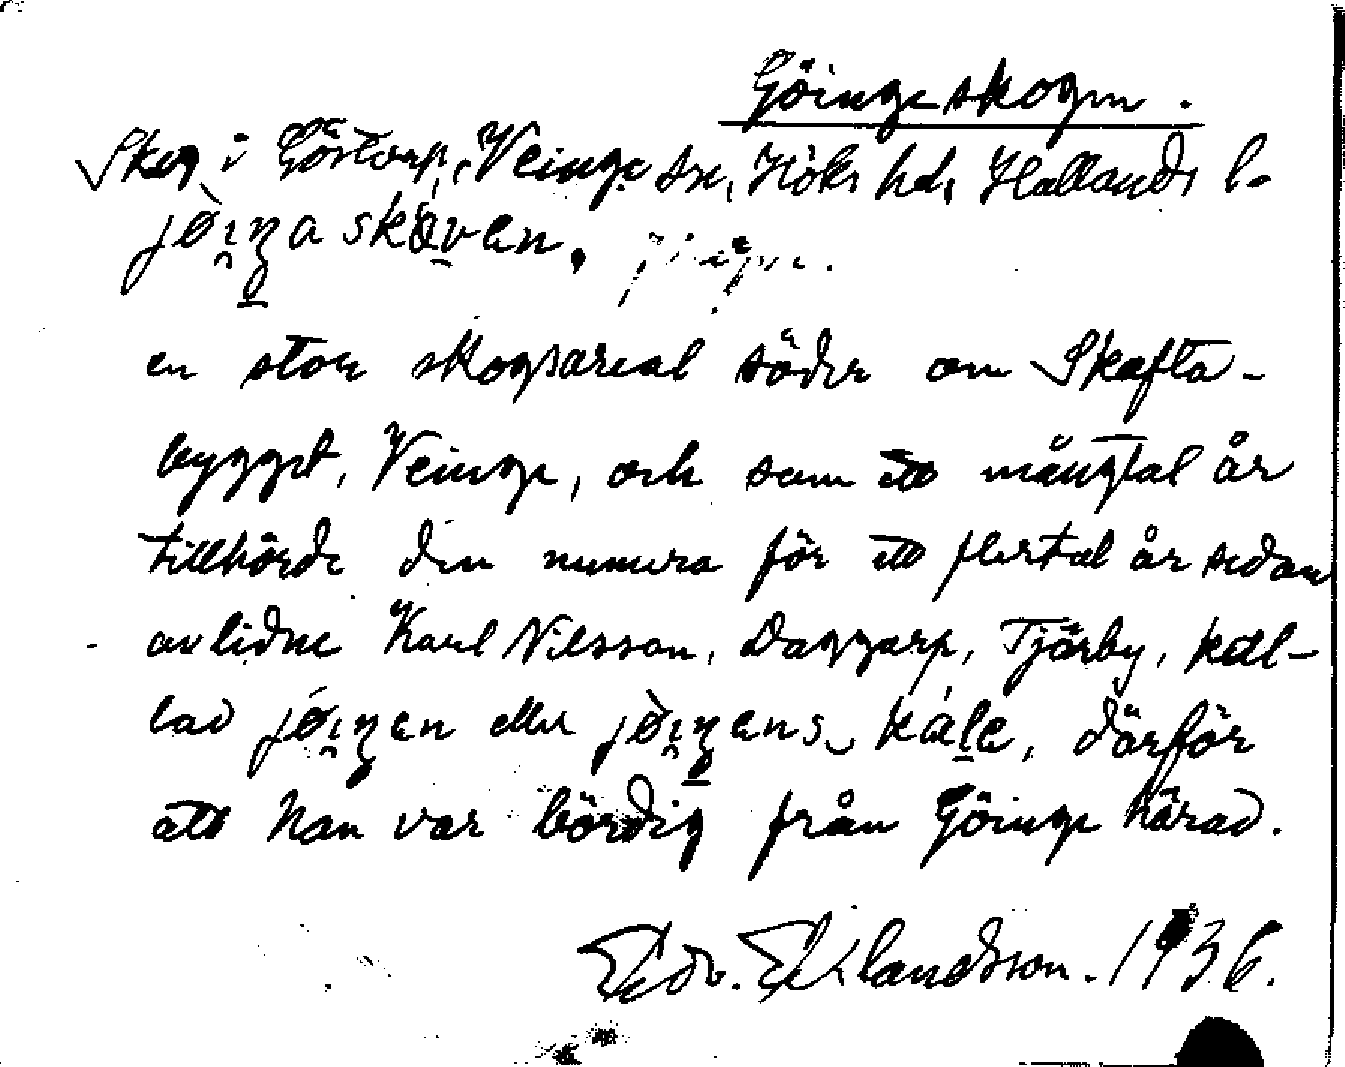 Göingeskogen.
Skog i Göstorp, Veinge sn, Höks hd, Hallands l.
jøi̯ŋa skòven.
en stor skogsareal söder om Skafta-
bygget, Veinge, och som ett mångtal år
tillhörde den numera för ett flertal år sedan
avlidne Karl Nilsson, Daggarp, Tjärby, kal-
lad jøi̯ŋen eller jøi̯ŋens kále, därför
att han var bördig från Göinge härad.
Edv. Eklandsson. 1936.